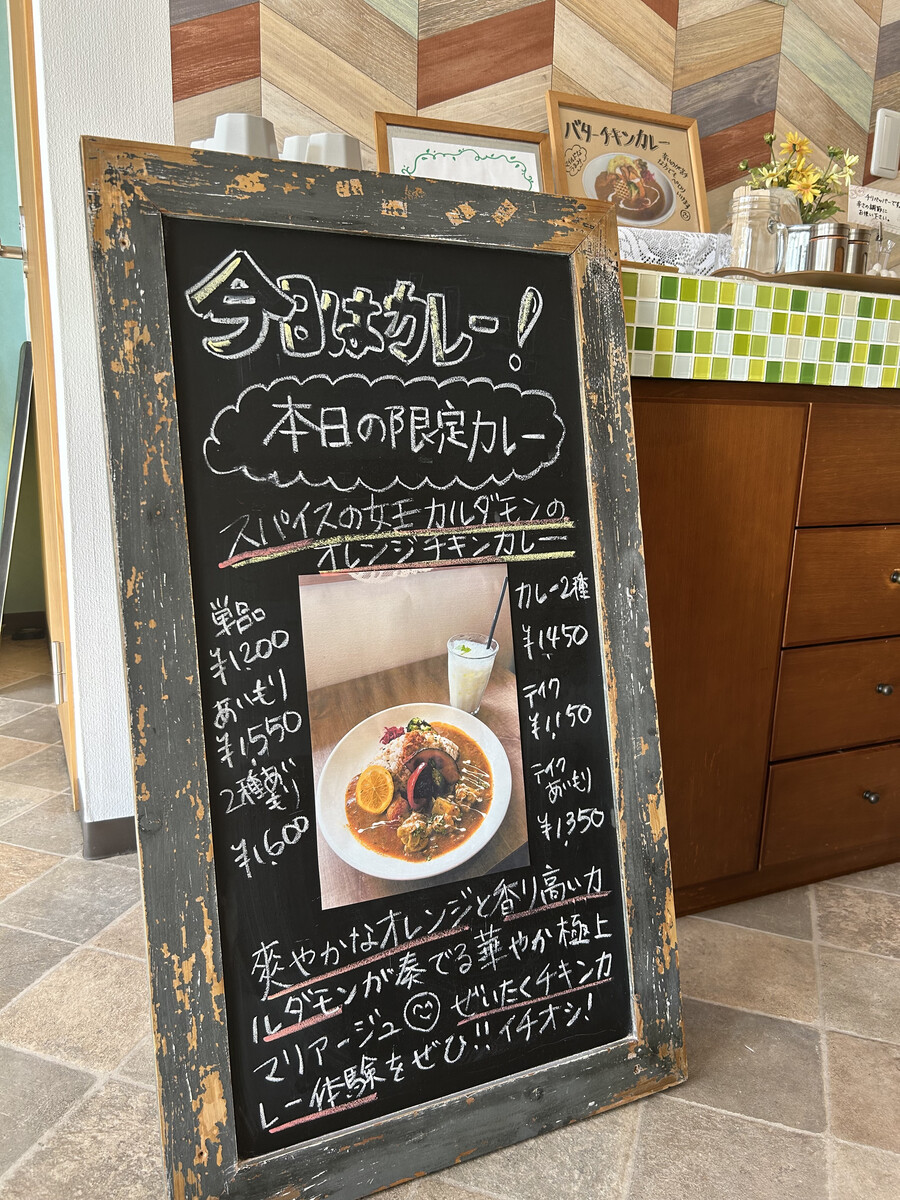 バターチキンカレー
チリペッパーです。
辛さの調節に
お使い下さい。
今日はカレー!
本日の限定カレー
スパイスの女王カルダモンの
オレンジチキンカレー
単品
¥1,200
あいもり
¥1,550
2種あいもり
¥1,600
カレー2種
¥1,450
テイク
¥1,150
テイク
あいもり
¥1,350
爽やかなオレンジと香り高いカ
ルダモンが奏でる華やか極上
マリアージュ ぜいたくチキンカ
レー体験をぜひ!!イチオシ!